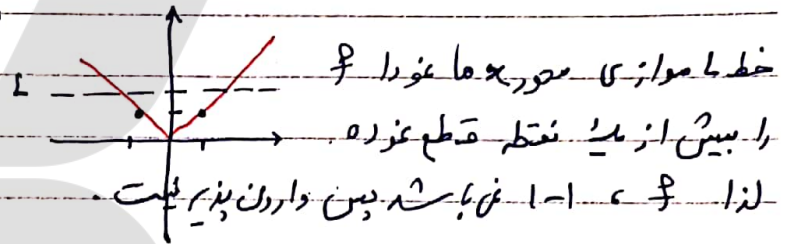 خط L موازی محور x ها نمودار f
را بیش از یک نقطه قطع نموده
لذا f ، 1-1 نمی باشد پس وارون پذیر نیست.
L